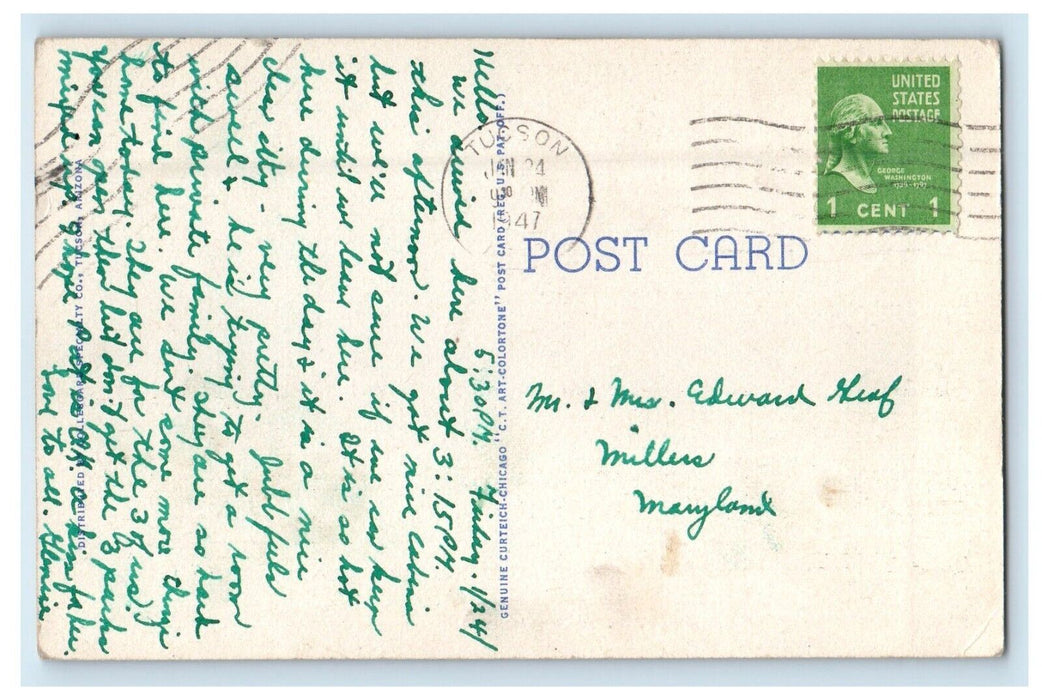 5:30 P.M. Friday, 1/24/
Hello
We arrived here about 3:15 P.M.
this afternoon. We got nice cabin
but will not care if we can keep
it until we leave here. It is so hot
here during the day & it is a nice
clear city - very pretty.
& he is trying to get a room
with private family. They are so hard
to find here. We sent some more things
home today. They are for the 3 of us.
on them but don't get the
of yours. Pat is O.K. a kiss for her.
Love to all.
DISTRIBUTED BY SPECIALTY CO., TUCSON, ARIZONA
GENUINE CURTEICH-CHICAGO "C.T. ART-COLORTONE" POST CARD (REG. U.S. PAT. OFF.)
TUCSON
JAN 24
PM
1947
UNITED
STATES
POSTAGE
GEORGE
WASHINGTON
1789-1797
1 CENT 1
POST CARD
Mr. & Mrs. Edward Graf
Millers
Maryland